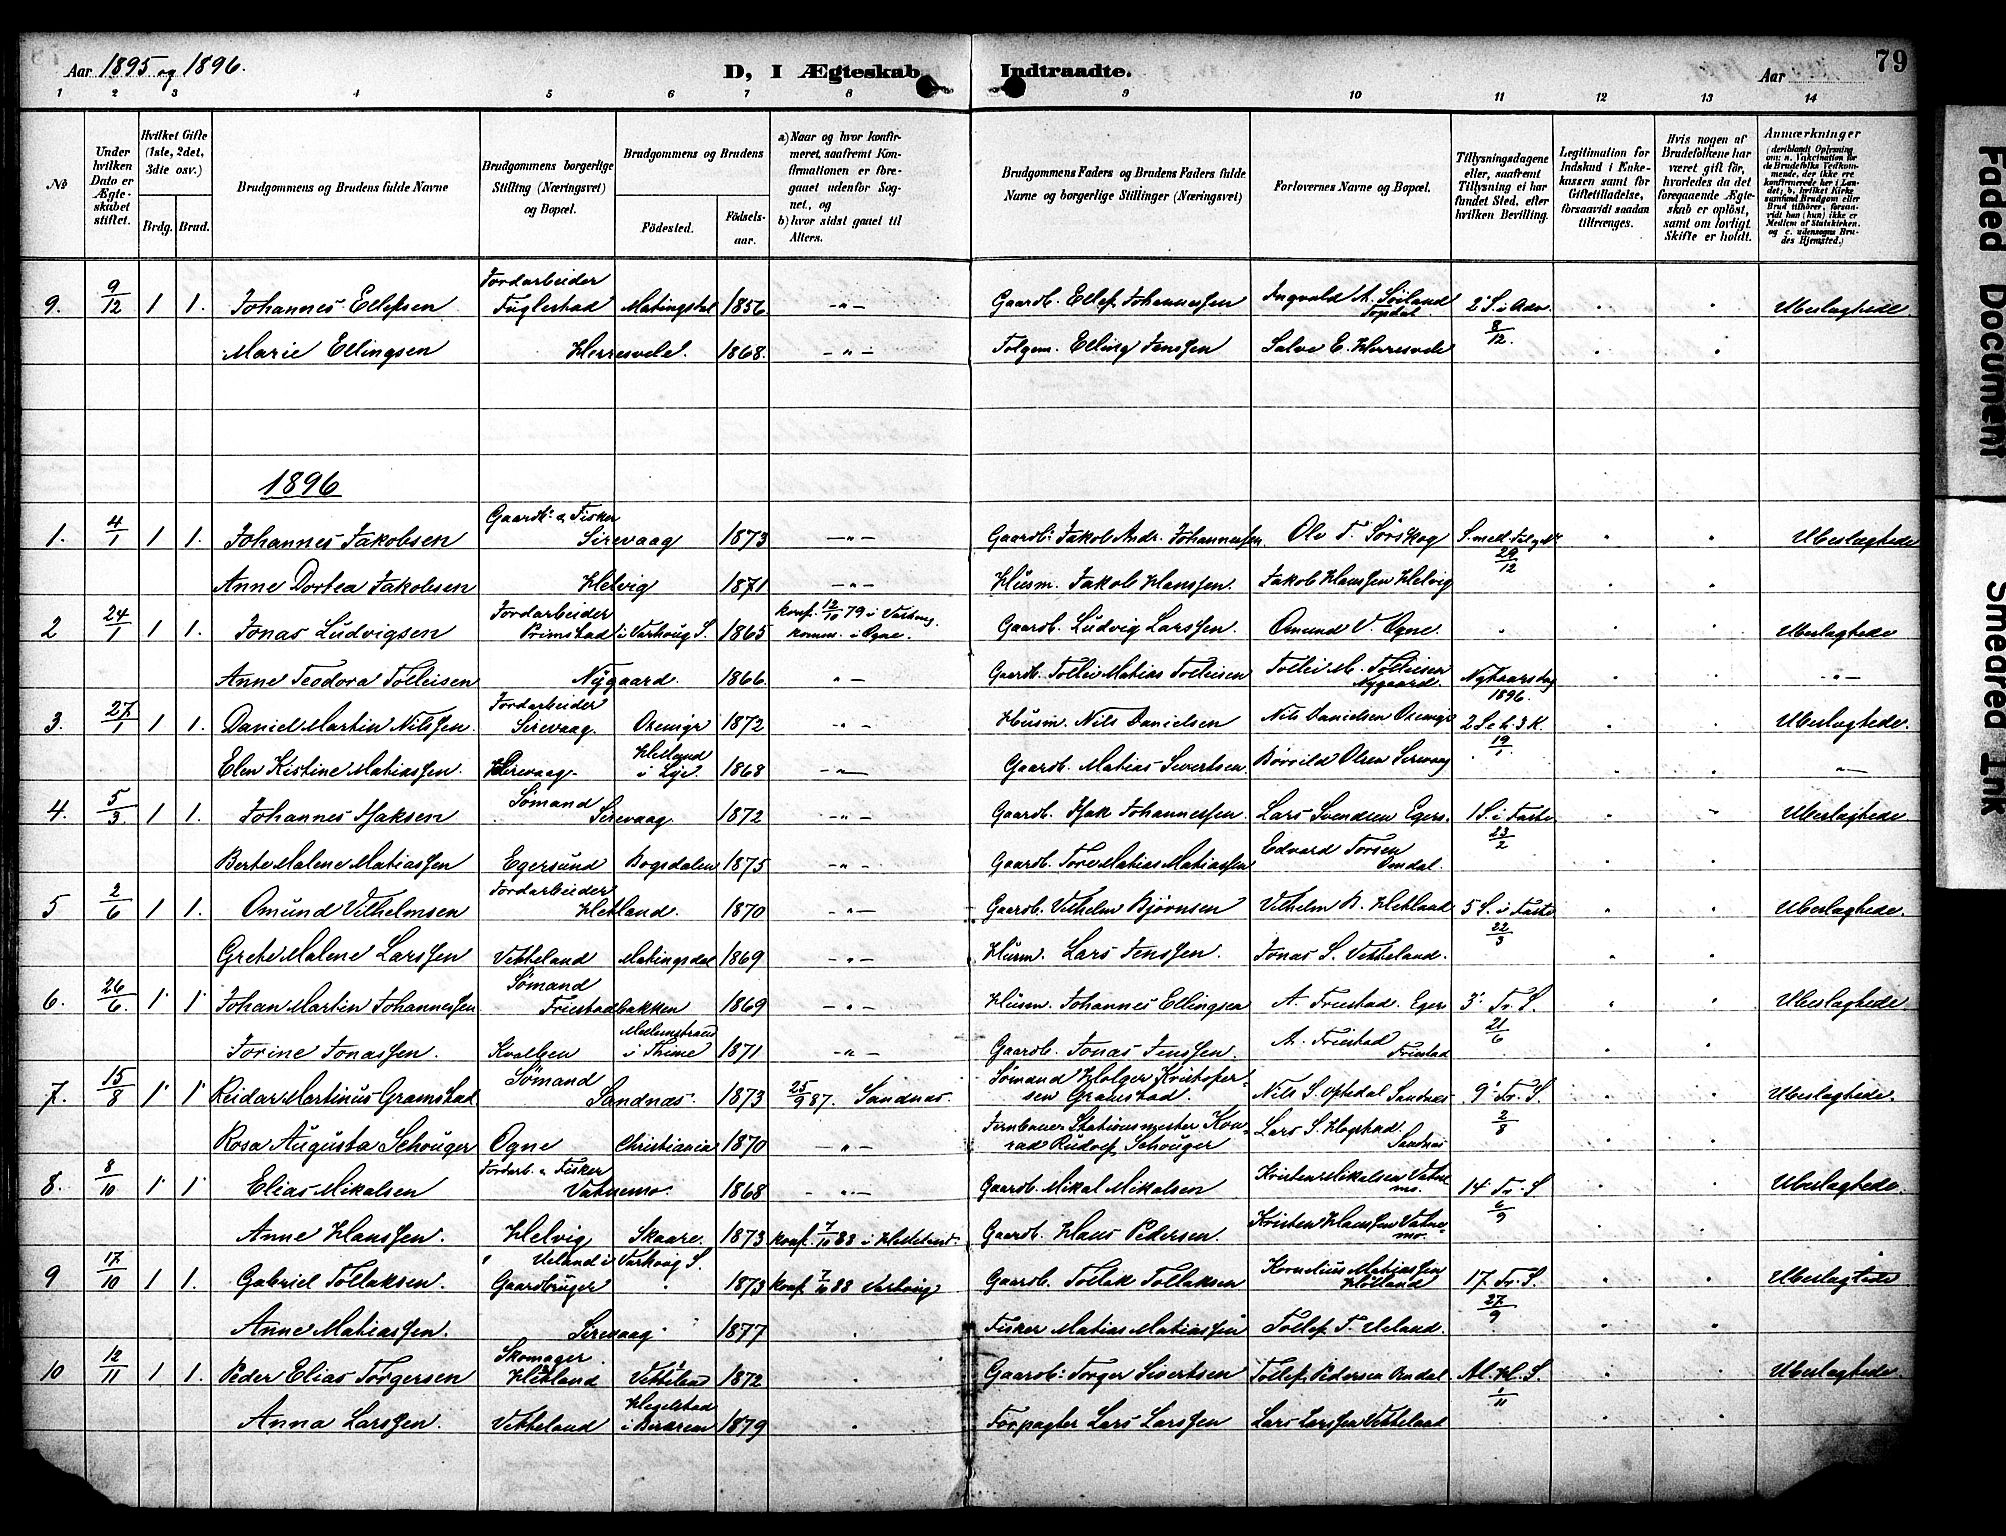 Aar 1895 og 1896.
D, I Ægteskab Indtraadte.
Aar
79
1 2 3 4 5 6 7 8 9 10 11 12 13 14
No
Under hvilken Dato er Ægteskabet stiftet.
Hvilket Gifte (1ste, 2det, 3die osv.)
Brdg. Brud.
Brudgommens og Brudens fulde Navne
Brudgommens borgerlige Stilling (Næringsvei) og Bopæl.
Brudgommens og Brudens
Födested. Födselsaar.
a) Naar og hvor konfirmeret, saafremt Konfirmationen er foregaaet udenfor Sognet, og
b) hvor sidst gaaet til Alters.
Brudgommens Faders og Brudens Faders fulde Navne og borgerlige Stillinger (Næringsvei)
Forlovernes Navne og Bopæl.
Tillysningsdagene eller, saafremt Tillysning ei har fundet Sted, efter hvilken Bevilling.
Legitimation for Indskud i Enkekassen samt for Giftetilladelse, forsaavidt saadan tiltrænges.
Hvis nogen af Brudefolkene har været gift før, hvorledes da det foregaaende Ægteskab er opløst, samt om lovligt Skifte er holdt.
Anmærkninger (deriblandt Oplysning om: a. Vakcination for de Brudefolks Vedkommende, der ikke ere konfirmerede her i Landet; b. hvilket Kirkesamfund Brudgom eller Brud tilhører, forsaavidt han (hun) ikke er Medlem af Statskirken, og c. udensogns Brudes Hjemsted.)
9. 9/12 1 1. Johannes Ellefsen Jordarbeider Fuglestad Matingsdal 1856 -"- Gaardb. Ellef Johannessen Ingvald A. Søiland 2 S. i Adv. 8/12. Ubeslægtede
Marie Ellingsen Herresvele. 1868. -"- Folgem. Elling Jenssen Salve E. Herresvele
1896
1. 4/1 1 1. Johannes Jakobsen Gaardb. & Fisker Sirevaag 1873 -"- Gaardb: Jakob Andr. Johannessen. Olv T. Sörskog 29/12 Ubeslægtede
Anne Dortea Jakobsen Helvig 1871 -"- Husm. Jakob Hanssen. Jakob Hanssen Helvig
2 24/1 1 1. Jonas Ludvigsen Jordarbeider Primstad i Varhoug S. 1865 konf. 12/10 79 i Varhoug komm. i Ogne. Gaardb. Ludvig Larssen. Omund V. Ogne. Ubeslægtede
Anne Teodora Tolleisen Nygaard. 1866. -"- Gaardb. Tollei Matias Tolleisen Tollei M. Tolleisen Nygaard. Nytaarsdag 1896. -"-
3. 27/1 1 1. Daniel Martin Nilssen. Jordarbeider Sirevaag. Oxemyr 1872 -"- Husm. Nils Danielsen Nils Danielsen Oxemyr 2 S. e. h. 3 K. 19/1. Ubeslægtede.
Elen Kistine Matiassen. Sirevaag. Helland i Lye. 1868 -"- Gaardb. Matias Sivertsen. Børild Olsen Sirevaag -"-
4. 5/3 1 1. Johannes Isaksen Sömand Sirevaag. 1872 -"- Gaardb. Isak Johannessen. Lars Svendsen Egers. 1 S. i Faste 23/2 Ubeslægtede
Berte Malene Matiassen Egersund Bogsdalen 1875 -"- Gaardb. Tore Matias Matiassen Edvard Torsen Omdal.
5 2/6 1 1. Omund Vilhelmsen Jordarbeider Hetland. 1870 -"- Gaardb. Vilhelm Bjørnsen Vilhelm B. Hetland 5 S. i Faste 22/3 Ubeslægtede.
Grete Malene Larssen Vetteland Matingsdal 1869 -"- Husm. Lars Jenssen. Jonas S. Vetteland.
6. 26/6 1 1 Johan Martin Johannessen Sömand Friestadbakken 1869 -"- Husm. Johannes Ellingsen A. Friestad. Eger 3' Tr. S. 21/6 Ubeslægtede.
Jorine Jonassen. Kvalben i Thime 1871 -"- Gaardb. Jonas Jenssen. A. Friestad Friestad
7. 15/8 1 1 Reidar Martinus Gramstad Sömand Sandnæs. 1873 25/9 87. Sandnæs. Sömand Holger Kristofersen Gramstad. Nils S. Opstedal Sandnæs 9' Tr. S. 2/8 Ubeslægtede.
Rosa Augusta Schouger Ogne Christiania 1870 -"- Jernbane-Stationsmester Konrad Rudolf Schouger Lars S. Hogstad Sandnæs
8. 8/10 1 1 Elias Mikalsen Jordarb. & Fisker Vatnemo. 1868 -"- Gaardb. Mikal Mikalsen Kristen Mikalsen Vatnemo. 14' Tr. S 6/9 Ubeslægtede.
Anne Hanssen. Helvig Skaare. 1873 konf. 7/10 88 i Helleland. Gaardb. Hans Pedersen. Kristen Hanssen Vatnemo.
9 17/10 1 1. Gabriel Tollaksen. Ueland i Varhoug S. Gaardbruger 1873 konf. 7/10 88 Varhoug Gaardb. Tollak Tollaksen Kornelius Matiassen Hölland 17. Tr. S. 27/9 Ubeslægtede
Anne Matiassen. Sirevaag 1877 Fisker Matias Matiassen Tollef T. Ueland.
10 12/11 1 1. Peder Elias Torgersen Skomager. Hetland Vetteland 1872 Gaardb: Torger Sivertsen Tollef Pedersen Omdal Al. H. S. 1/11 Ubeslægtede.
Anna Larssen. Vetteland Hegelstad i Bjerkreim 1879 Forpagter Lars Larssen Lars Larssen Vetteland
Faded Document
Smeared Ink